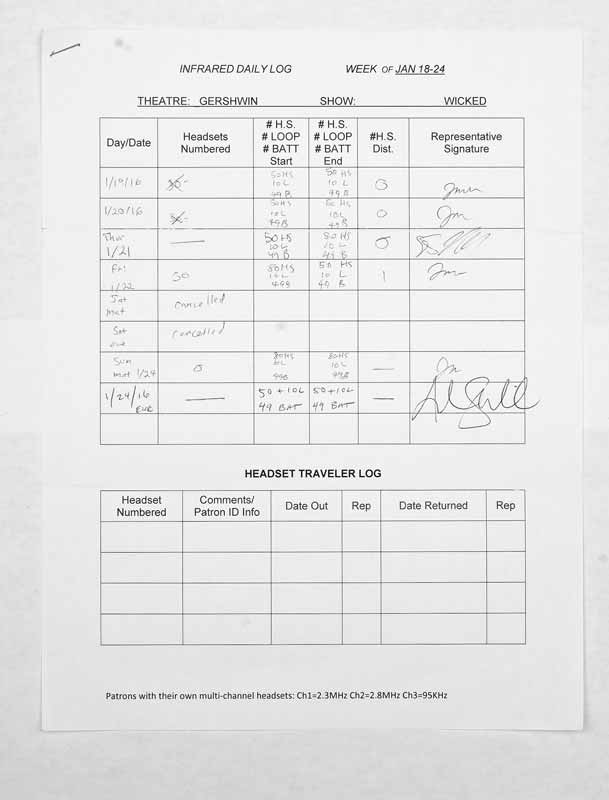 INFRARED DAILY LOG WEEK OF JAN 18-24
THEATRE: GERSHWIN SHOW: WICKED
Day/Date
Headsets
Numbered
# H.S.
# LOOP
# BATT
Start
# H.S.
# LOOP
# BATT
End
#H.S.
Dist.
Representative
Signature
1/19/16
50HS
10 L
49 B
50 HS
10 L
49 B
0
1/20/16
50HS
10L
49B
50HS
10L
49 B
0
Thur
1/21
—
50HS
10 L
49 B
50 HS
10 L
49 B
0
Fri
1/22
50
50HS
10L
50 HS
10 L
49 B
1
Sat
mat
cancelled
Sat
eve
cancelled
Sun
mat 1/24
0
50HS
10L
49B
50HS
10L
49B
—
1/24/16
EVE
—
50 + 10L
49 BAT
50 + 10L
49 BAT
—
HEADSET TRAVELER LOG
Headset
Numbered
Comments/
Patron ID Info
Date Out
Rep
Date Returned
Rep
Patrons with their own multi-channel headsets: Ch1=2.3MHz Ch2=2.8MHz Ch3=95KHz